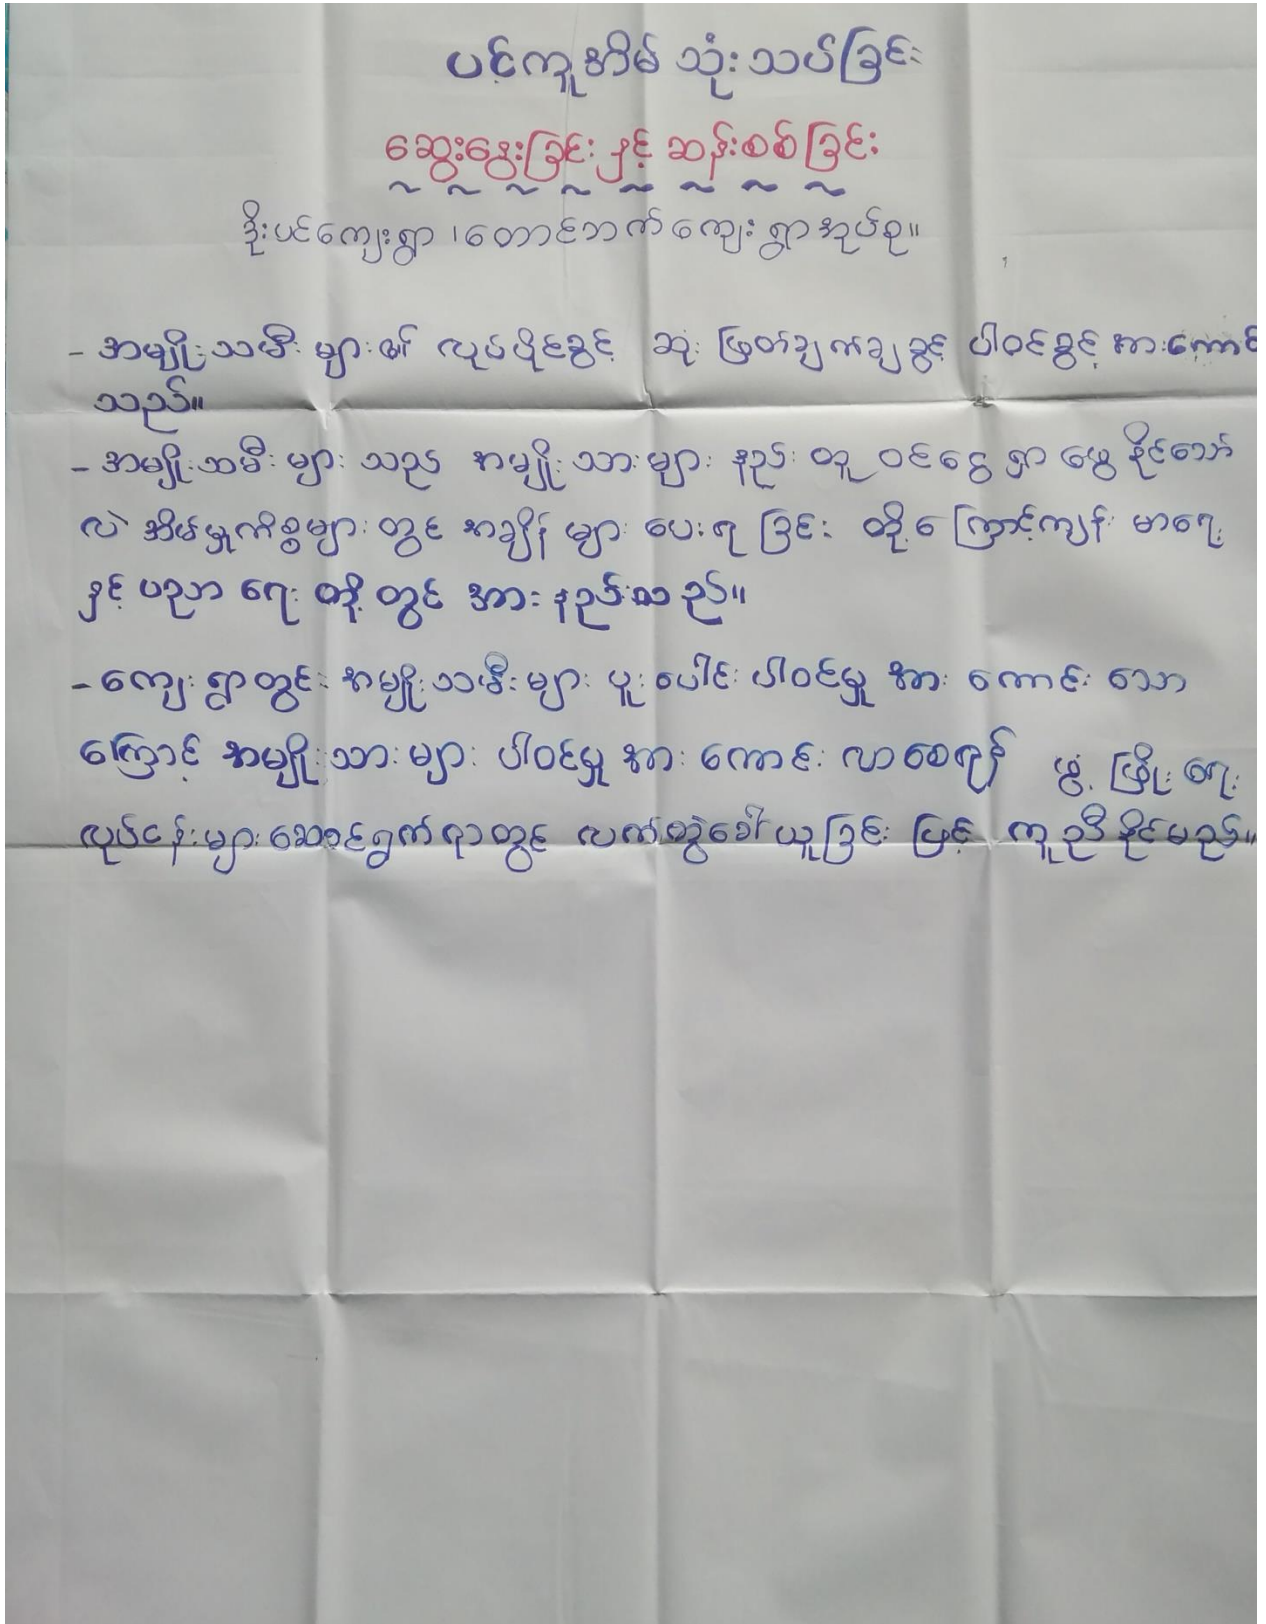 ပင့်ကူအိမ် သုံးသပ်ခြင်း
ဆွေးနွေးခြင်း နှင့် ဆန်းစစ်ခြင်း
ဒိုးပင်ကျေးရွာ ၊ တောင်ဘက်ကျေးရွာအုပ်စု။
- အမျိုးသမီးများ၏ လုပ်ပိုင်ခွင့် ဆုံးဖြတ်ချက်ချခွင့် ပါဝင်ခွင့် အားကောင်
သည်။
- အမျိုးသမီးများ သည် အမျိုးသားများ နည်းတူ ဝင်ငွေ ရှာဖွေ နိုင်သော်
လဲ အိမ်မှုကိစ္စများ တွင် အချိန် များ ပေးရ ခြင်း တို့ကြောင့်ကျန်းမာရေး
နှင့် ပညာ ရေး တို့ တွင် အား နည်းသည်။
- ကျေးရွာတွင်း အမျိုးသမီးများ ပူးပေါင်း ပါဝင်မှု အား ကောင်း သော
ကြောင့် အမျိုးသားများ ပါဝင်မှု အား ကောင်း လာစေရန် ဖွံ့ဖြိုးရေး
လုပ်ငန်းများဆောင်ရွက်ရာတွင် လက်တွဲခေါ်ယူခြင်း ဖြင့် ကူညီနိုင်မည်။